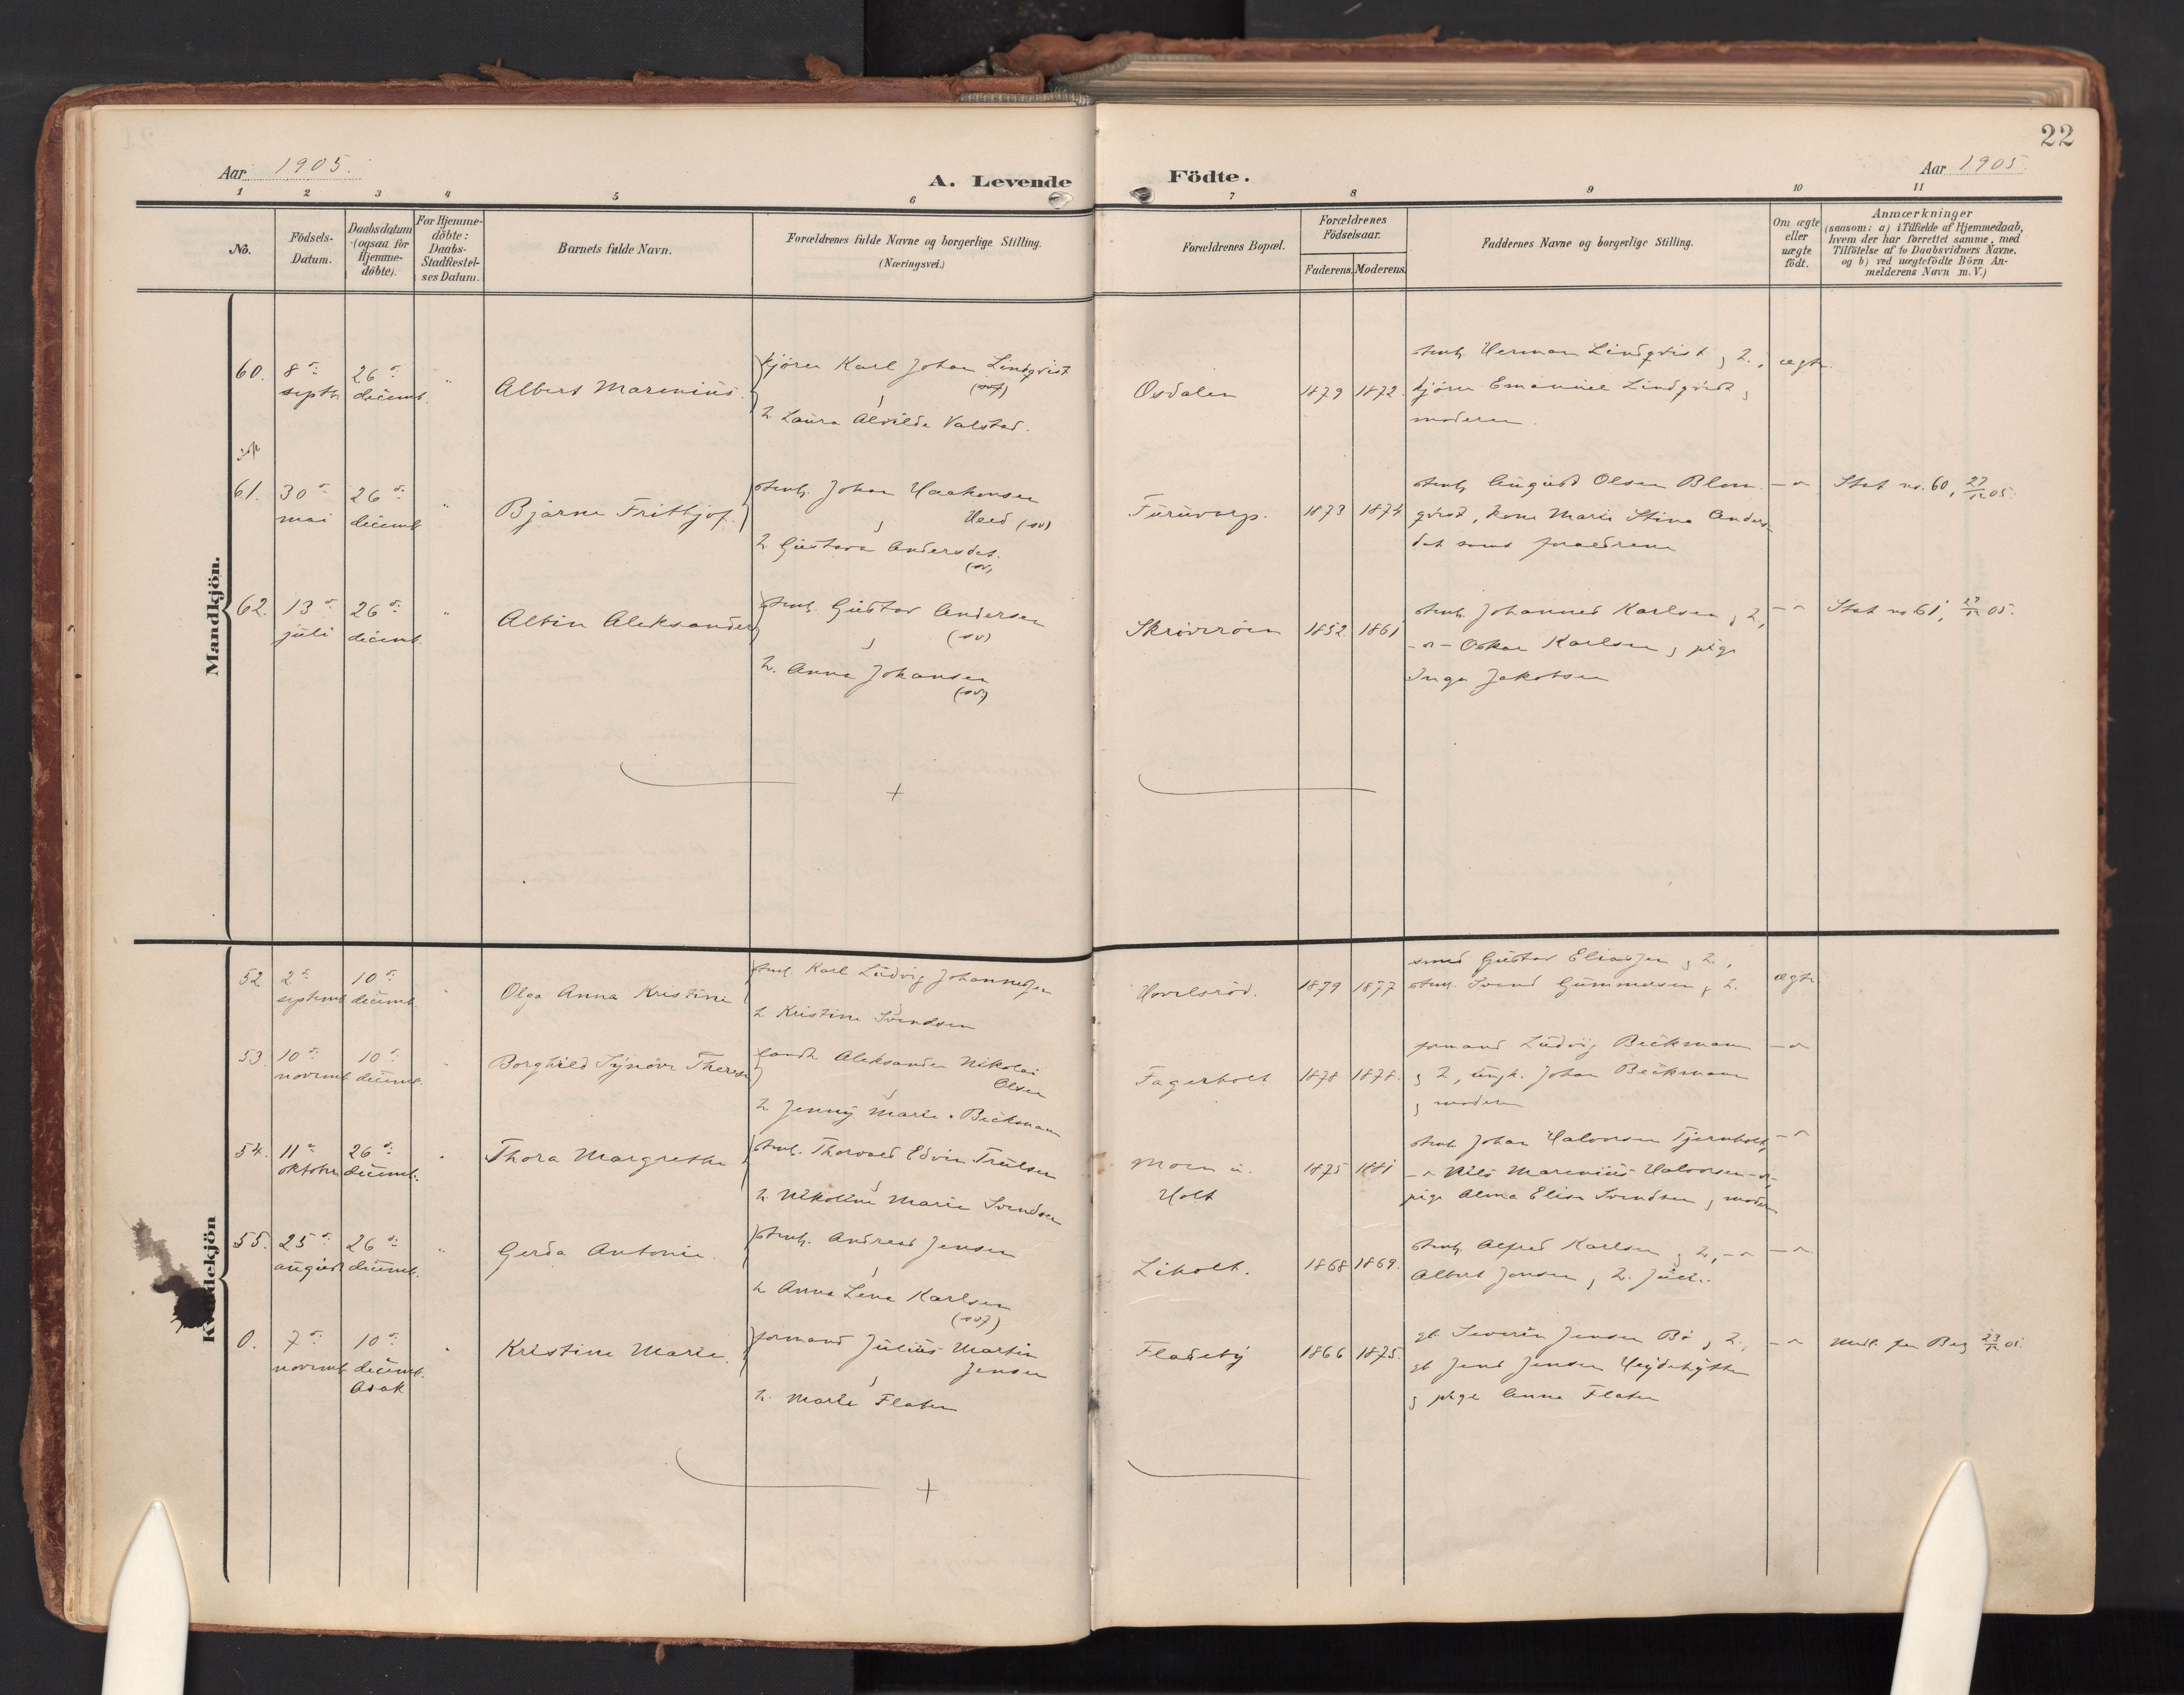 22
Aar 1905.
A. Levende Födte.
Aar 1905.
1 2 3 4 5 6 7 8 9 10 11
No.
Födsels-
Datum.
Daabsdatum
(ogsaa for
Hjemme-
döbte).
For Hjemme-
döbte:
Daabs-
Stadfæstel-
ses Datum.
Barnets fulde Navn.
Forældrenes fulde Navne og borgerlige Stilling.
(Næringsvei.)
Forældrenes Bopæl.
Forældrenes
Födselsaar.
Faderens. Moderens.
Faddernes Navne og borgerlige Stilling.
Om ægte
eller
uægte
födt.
Anmærkninger
(saasom: a) i Tilfælde af Hjemmedaab,
hvem der har forrettet samme, med
Tilföielse af to Daabsvidners Navne.
og b) ved uægtefödte Börn An-
melderens Navn m. V.)
Mandkjön.
60.
8de
septb.
26de
decemb.
"
Albert Marenius.
kjörer Karl Johan Lindqvist
(svf)
,
h. Laura Alvilde Valstad.
Osdalen
1879 1872.
stenh. Herman Lindqvist, h.,
kjörer Emanuel Lindqvist,
moderen.
ægte
61.
30de
mai
26de
decemb.
"
Bjarne Frithjof.
stenh. Johan Haakonsen
Heed (sv)
,
h. Gustava Andersdat.
(sv)
Furuvarp.
1873 1874.
stenh. August Olsen Blom-
qvist, kone Marie Stina Anders-
dat samt forældrene
-"-
Stat no. 60, 27/12 05.
62.
13de
juli
26de
decemb.
"
Albin Aleksander
stenh. Gustav Andersen
(sv)
,
h. Anna Johansen
(sv)
Skriveröen
1852 1861
stenh. Johannes Karlsen, h.,
-"- Oskar Karlsen, pige
Inga Jakobsen
-"-
Stat no 61, 27/12 05.
+
Kvindekjön
52
2de
septemb.
10de
decemb.
Olga Anna Kristine
stenh. Karl Ludvig Johannessen
,
h Kristine Svendsen
Hovelsröd.
1879 1877
smed Gustav Eliassen, h.,
stenh. Svend Gummesen, h.
ægte
53.
10de
novemb.
10de
decemb.
"
Borghild Synöve Therese
landh. Aleksander Nikolai
Olsen
,
h Jenny Marie Beckmann
Fagerholt
1878 1878.
formand Ludvig Beckmann
, h, ungk. Johan Beckmann
, moderen
-"-
54.
11te
oktober
26de
decemb.
"
Thora Margrethe
stenh. Thorvald Edvin Trulsen
,
h. Nikoline Marie Svendsen
Moen u.
Holt
1875 1881
stenh. Johan Halvorsen Tjernholt,
-"- Nils Marenius Halvorsen -"-,
pige Alma Elise Svendsen, moderen
-"-
55.
25de
august
26de
decemb.
"
Gerda Antonie.
stenh. Andreas Jensen
,
h Anna Lena Karlsen
(svf)
Liholt.
1868 1869.
stenh. Alfred Karlsen, h, -"-
Albert Jensen, h.
-"-
0.
7de
novemb.
10de
decemb.
Asak
"
Kristine Marie.
formand Julius Martin
Jensen
,
h. Marie Flaten
Fladeby
1866 1875.
gb. Severin Jensen Bö, h.,
gb Jens Jensen Heydehytten
, pige Anna Flaten
-"-
Medl. fra Berg 23/12 05.
+